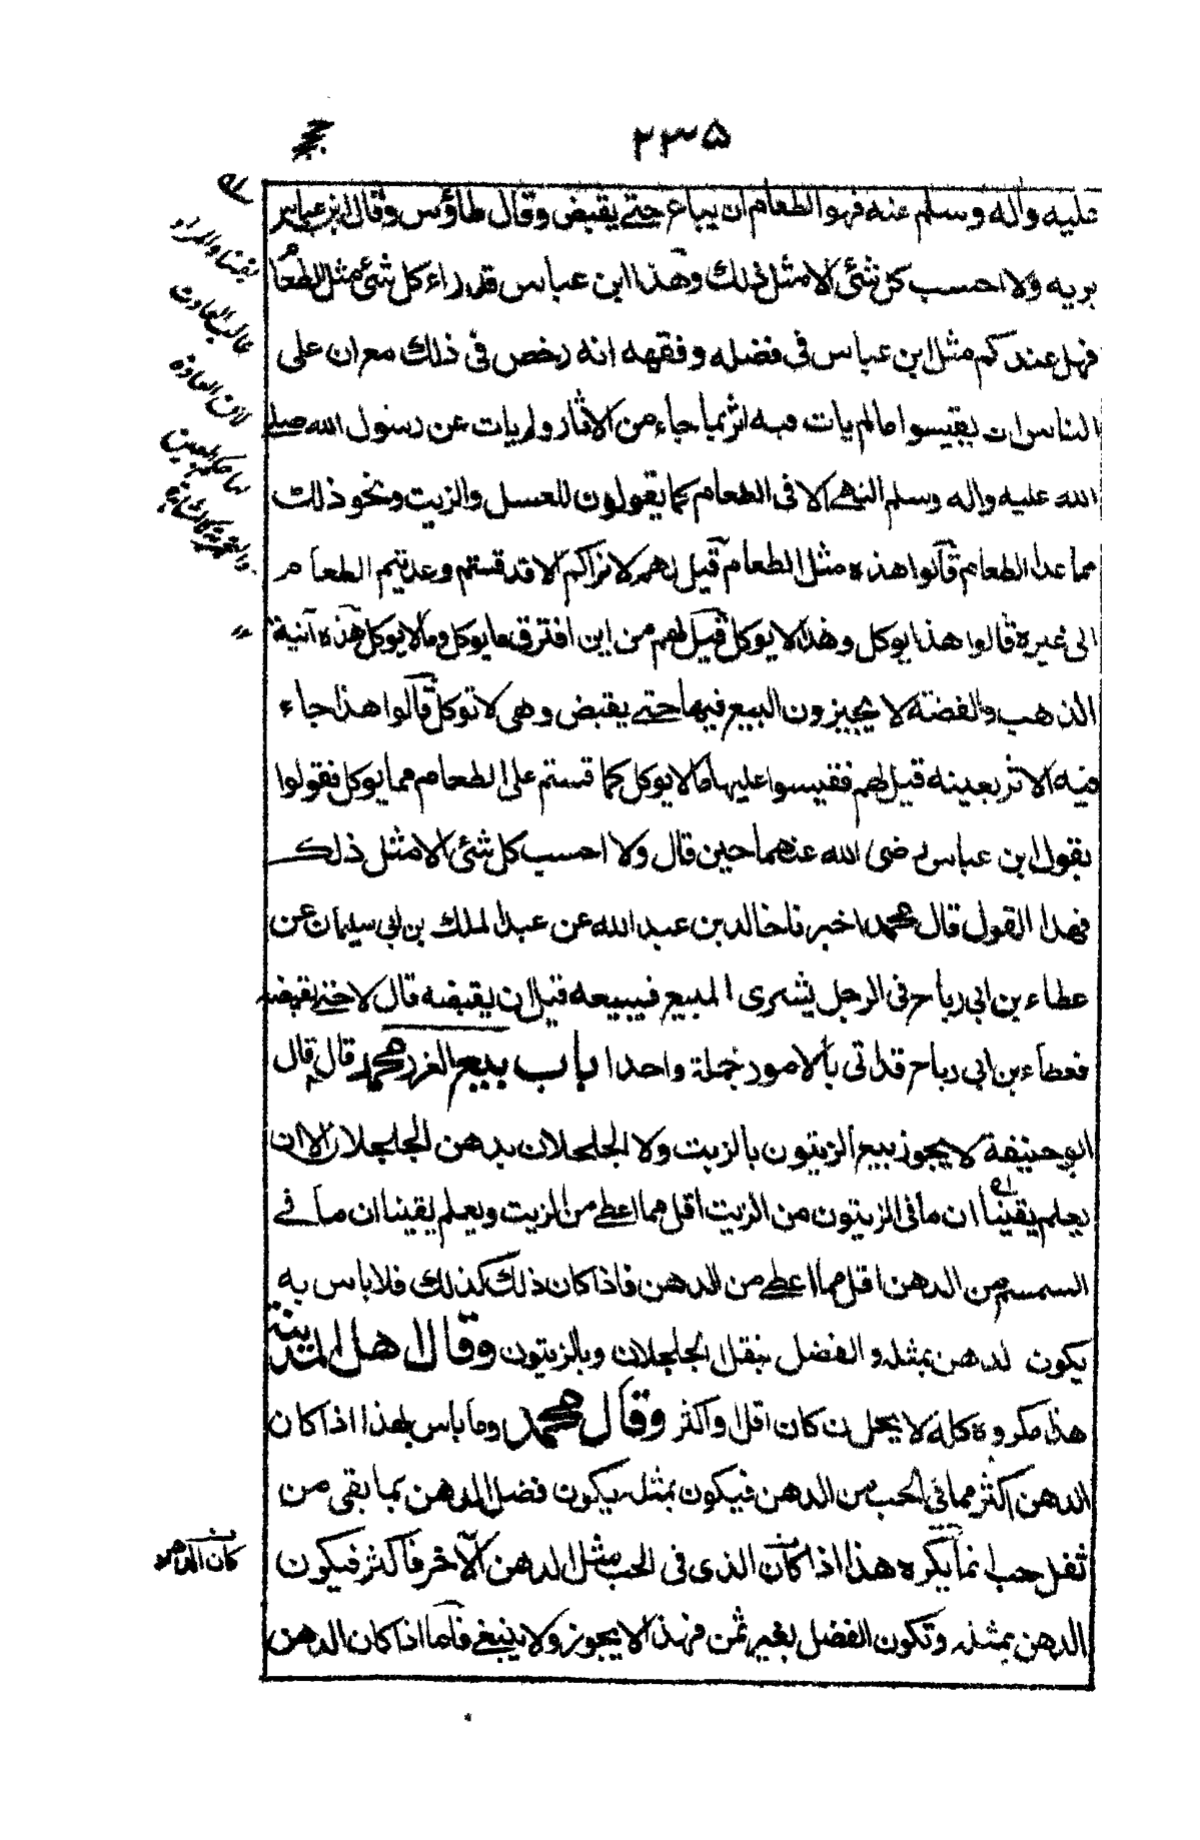 ٢٣٥
عليه واله وسلم عنه فهو الطعام ان يباع حتى يقبض وقال طاؤس وقال ابن عباس
بريه ولا احسب كل شئ الا مثل ذلك وهذا ابن عباس قد راء كل شئ مثل الطعام
فهل عندكم مثل ابن عباس فى فضله وفقهه انه رخص فى ذلك مع ان على
الناس ان يقيسوا ما لم يات فيه اثر بما جاء من الاثار ولم يات عن رسول الله صلى
الله عليه واله وسلم النهى الا فى الطعام كما يقولون للعسل والزيت ونحو ذلك
مما عدا الطعام قالوا هذه مثل الطعام قيل لهم لا نراكم الا قد قستم وعديتم الطعام
الى غيره قالوا هذا يوكل وهذا لا يوكل قيل لهم من اين افترق ما يوكل وما لا يوكل هذه آنية
الذهب والفضة لا يجيزون البيع فيها حتى يقبض وهى لا توكل قالوا هذا جاء
فيه الاثر بعينه قيل لهم فقيسوا عليها ما لا يوكل كما قستم على الطعام مما يوكل فقولوا
بقول ابن عباس رضى الله عنهما حين قال ولا احسب كل شئ الا مثل ذلك
فهذا القول قال محمد اخبرنا خالد بن عبد الله عن عبد الملك بن ابى سليمان عن
عطاء بن ابى رباح فى الرجل يشترى المبيع فيبيعه قبل ان يقبضه قال لا حتى يقبضه
فعطاء بن ابى رباح قد اتى بالامور جملة واحدا باب بيع الغرر محمد قال قال
ابو حنيفة لا يجوز بيع الزيتون بالزيت ولا الجلجلان بدهن الجلجلان الا ان
يعلم يقينا ان ما فى الزيتون من الزيت اقل مما اعطى من الزيت ويعلم يقينا ان ما فى
السمسم من الدهن اقل مما اعطى من الدهن فاذا كان ذلك كذلك فلا باس به
يكون الدهن بمثله والفضل بثقل الجلجلان وبالزيتون وقال اهل المدينة
هذا مكروه كله لا يحل ان كان اقل واكثر وقال محمد وما باس بهذا اذا كان
الدهن اكثر مما فى الحب من الدهن فيكون بمثله يكون فضل الدهن بما بقى من
ثفل حب انما يكره هذا اذا كان الذى فى الحب مثل الدهن الآخر فاكثر فيكون
الدهن بمثله وتكون الفضل بغير ثمن فهذا لا يجوز ولا ينبغى فاما اذا كان الدهن
يقينا والمراد
غالب العادت
لان العادة
كان الدهن